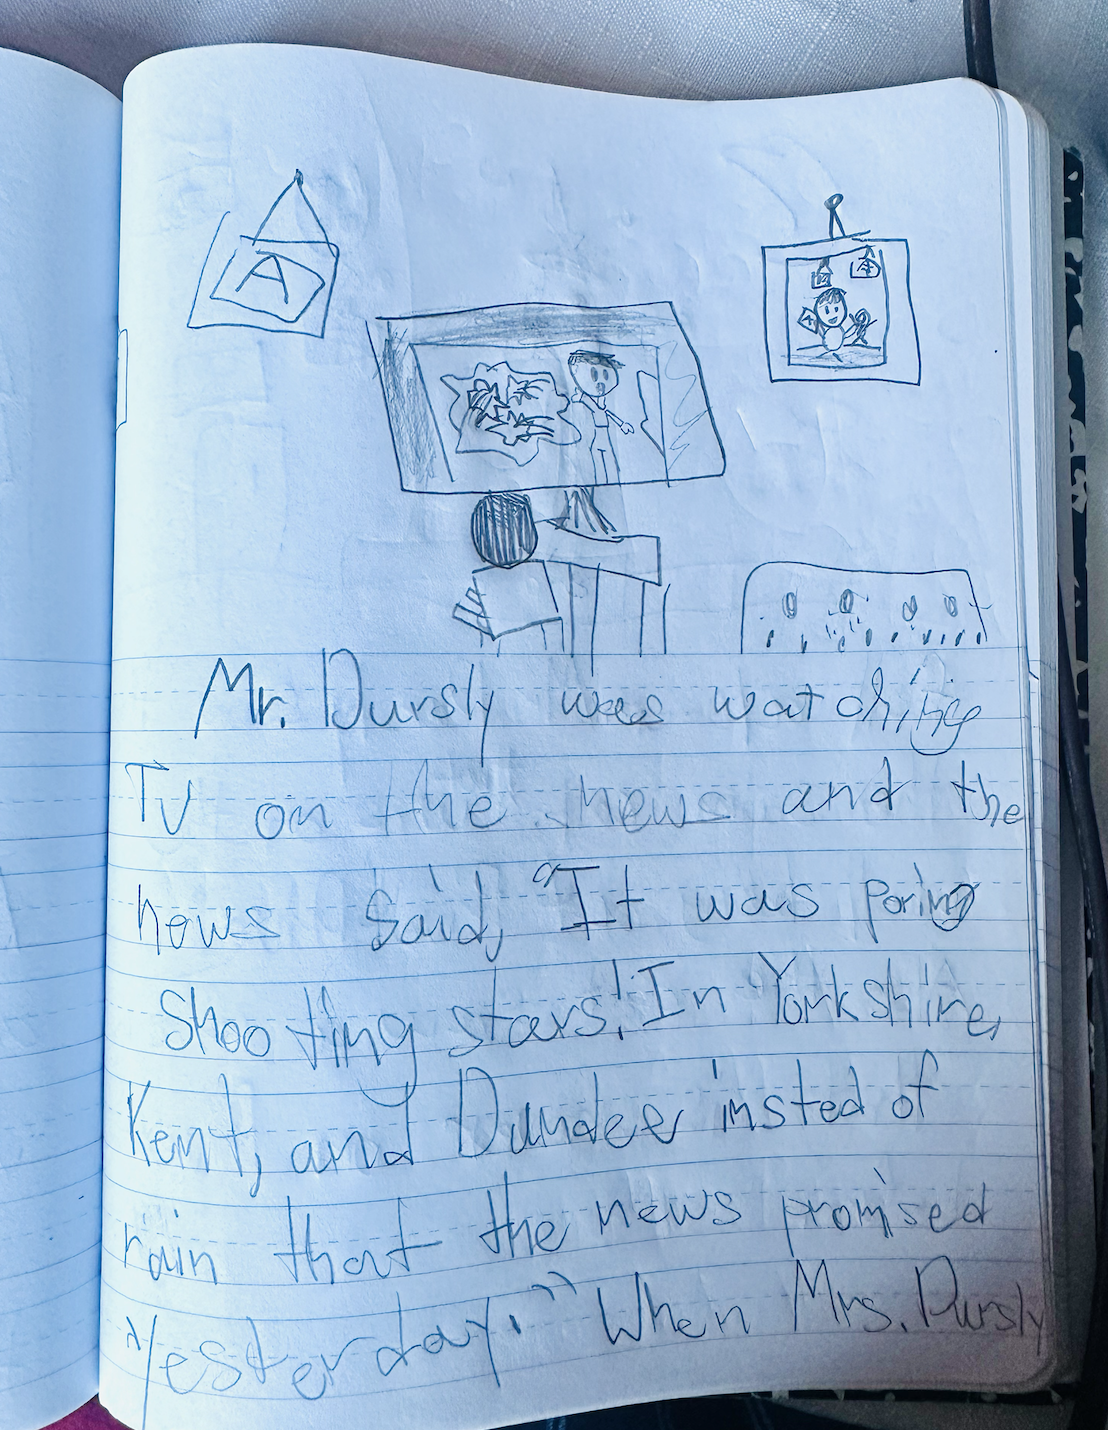 A
Mr. Dursly was watching
TV on the news and the
news said, "It was poring
Shooting stars! In Yorkshire,
Kent, and Dundee insted of
rain that the news promised
yesterday." When Mrs. Dursly